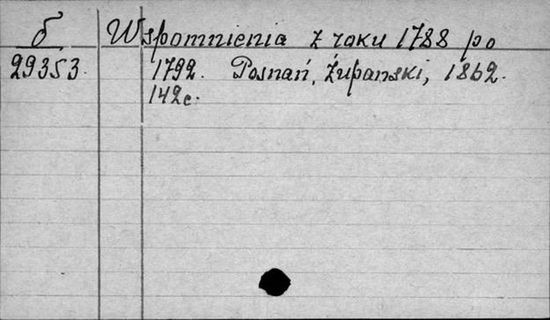 б Wspomnienia z roku 1788 po
29353. 1792. Posnań, Żupanski, 1862.
142c.